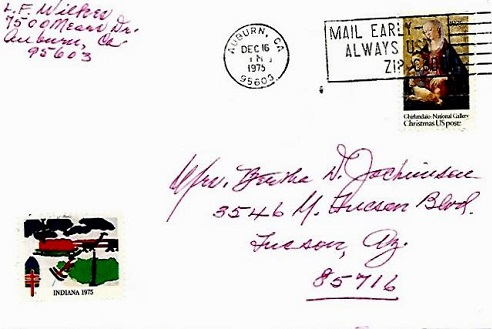 L. F. Wilkes
7500 Mears Dr.
Auburn, Ca
95603
AUBURN, CA
DEC 16
1975
95603
MAIL EARLY
ALWAYS USE
ZIP CODE
Ghirlandaio: National Gallery
Christmas US postage
Mrs. Bertha D. Jochimsen
3546 N. Tucson Blvd.
Tucson, Az.
85716
INDIANA 1975